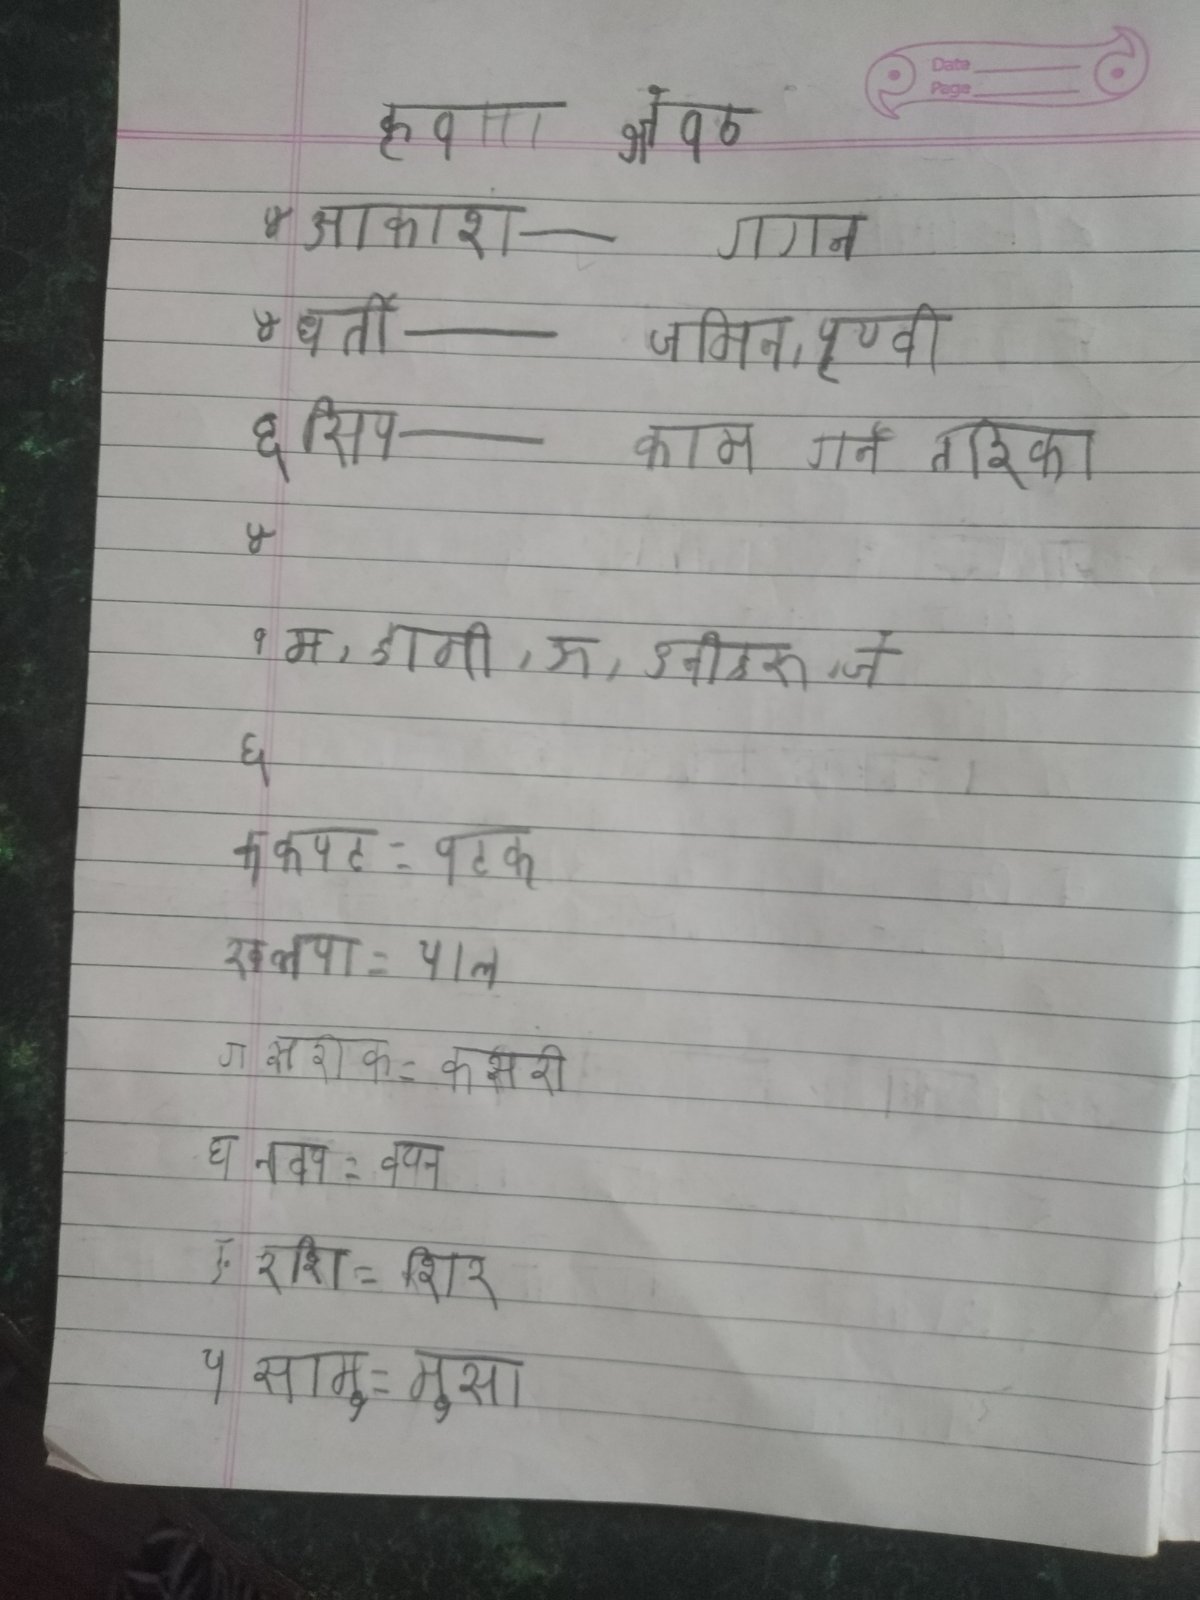 Date
Page
४ आकाश — गगन
४ धर्ती — जमिन, पृथ्वी
६ सिप — काम गर्ने तरिका
४
१ म, हामी, ऊ, उनीहरू, जे
६
क कपट = पटक
ख लपा = पाल
ग सरीक = कसरी
घ नवप = वपन
ङ रशि = शिर
५ सामु = मुसा